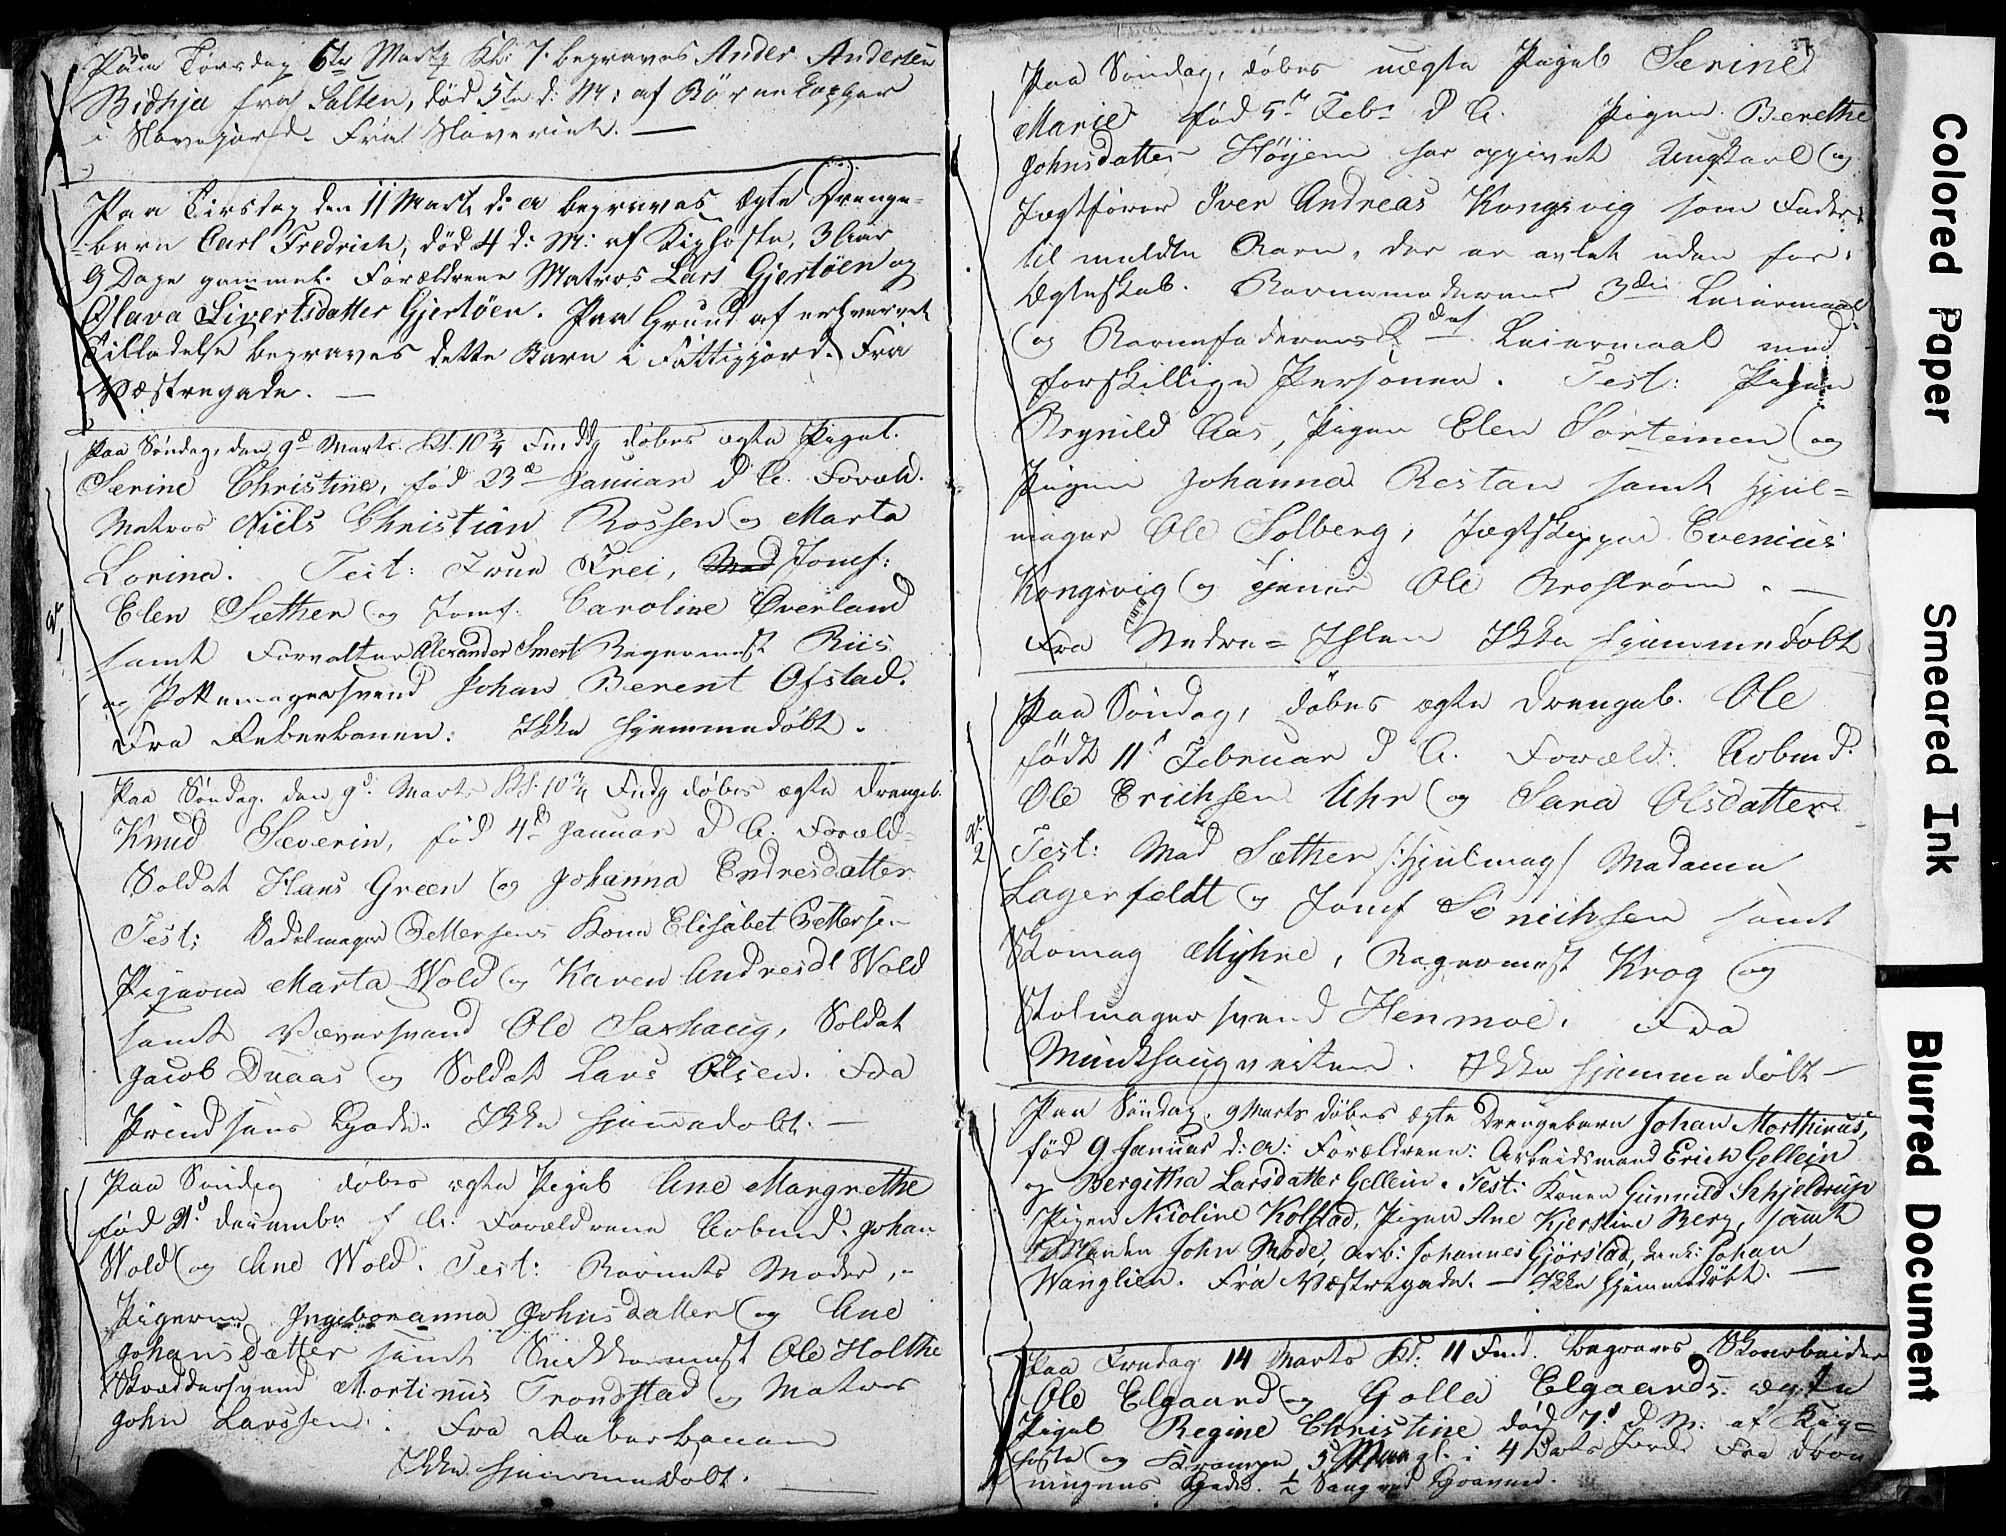 36
Paa Torsdag 6te Marts Kl: 7. begraves Ander Andersen
Bidhja fra Salten, død 5te d: M: af Børnekopper
i Slavegjord. Fra Slaveriet. —
Paa Tirsdag den 11 Marts d: A begraves ægte Drenge-
-barn Carl Fredrich, død 4 d: M: af Kighoste, 3 Aar
9 Dage gammel. Forældrene Matros Lars Gjertöen og
Olava Sivertsdatter Gjertöen. Paa Grund af erhvervet
Tilladelse begraves dette Barn i Fattigjord. Fra
Væstregade. —
Paa Søndag, den 9d Marts. Kl. 10¾ Fmddg døbes ægte Pigeb.
Serine Christine, fød 23d Januar d A. Foræld.
Matros Niils Christian Rossen og Marta
Lorina. Test: Frue Frei, Mad Jomf:
Elen Sæther og Jomf. Caroline Overland
samt Forvalter Alexander Smert Bagermest Riis
og Pottemagersvend Johan Berent Ofstad.
Fra Reberbanen: Ikke hjemmedøbt.
N 1
Paa Søndag. den 9d. Marts Kl. 10¾ Fmdg døbes ægte Drengeb.
Knud Severin, fød 4d Januar d A. Foræld-
Soldat Hans Green og Johanna Endresdatter
Test: Sadelmager Pettersens Kone Elisabet Petterse-
Pigerne Marta Wold og Karen Andresdt Wold
samt Væversvend Ole Saxhaug, Soldat
Jacob Duaas og Soldat Lars Olsen. Fra
Prindsens Gade. Ikke hjemmedøbt. —
Paa Søndag døbes ægte Pigeb Ane Margrethe
fød 21d December f A. Forældrene Arbmd. Johan
Wold og Ane Wold. Test: Barnets Moder,
Pigerne Ingeboranna Johnsdatter og Ane
Johansdatter samt Snekkermest Ole Holthe
Skræddersvend Mortinus Trondstad og Matros
John Larssen. Fra Reberbanen
Ikke hjemmedøbt. —
37
Paa Søndag, døbes uægte Pigeb Serine
Marie fød 5te Febr d A. Pigen Berethe
Johnsdatter Høyem har opgivet Ungkarl og
Jægtfører Iver Andreas Kongsvig som Fader
til meldte Barn, der er avlet uden for
Ægteskab. Barnemoderens 3die Leiermaal
og Barnefaderens 2det Leiermaal med
forskillige Personer. Test: Pigen
Brynild Aas, Pigen Elen Sortemen og
Pigen Johanna Restan samt Hjul=
mager Ole Solberg, Jægtskipper Evenius
Kongsvig og Tjener Ole Brostrøm. —
Fra Nedre=Ihlen Ikke hjemmedøbt
Paa Søndag, døbes ægte Drengeb. Ole
født 11d Februar d A. Foræld: Arbmd.
Ole Erichsen Uhr og Sara Olsdatter
Test: Mad Sæther /:Hjulmag/ Madame
Lagerfeldt og Jomf Sönichsen samt
Skomag Myhre, Bagermest Krog og
Stolmagersvend Henmoe. Fra
Munkhaugveiten. Ikke hjemmedøbt —
N 2
Paa Søndag, 9 Marts døbes ægte Drengebarn Johan Morthinus,
fød 9 Januar d: A: Forældrene: Arbeidsmand Erich Gellein
og Bergitha Larsdatter Gellein. Test: Konen Gunnild Schjeldrup
Pigen Nicoline Kolstad, Pigen Ane Kjerstine Berg, samt
John Mode, Arb: Johannes Gjörstad, Johan
Wanglien. Fra Væstregade. — Ikke hjemmedøbt. —
Paa Fredag 14 Marts Kl: 11 Fmd. begraves Skoarbeider
Ole Elgaard og Golla Elgaards ægte
Pigeb Regine Christine død 7d d M. af Kig=
hoste og Krampe 5 Maan gl. i 4 Jord. Fra Dron
ningens Gade. ½ Sang ved Graven.
Colored Paper
Smeared Ink
Blurred Document